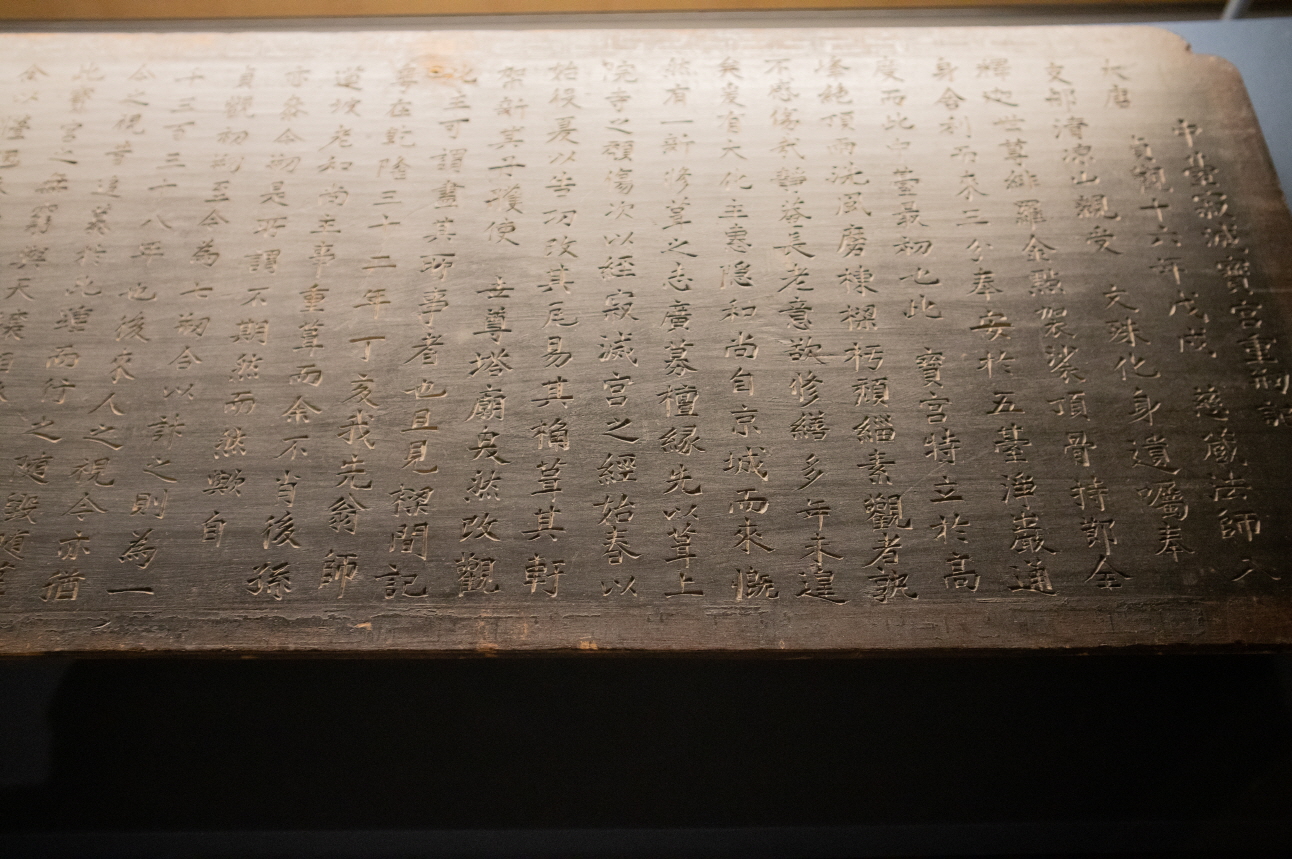 中臺寂滅寶宮重剏記
大唐貞觀十六年戊戌 慈藏法師入
支那清凉山親受 文殊化身遺囑奉
釋迦世尊緋羅金點袈裟頂骨特部全
身舍利而來三分奉安於五臺淨巖通
度而此中臺最初也此 寶宮特立於高
峯絶頂而洗風磨棟樑朽頹緇素觀者孰
不感傷哉碧峯長老意欲修繕多年未遑
矣爰有大化主惠隐和尚自京城而來慨
然有一新修葺之志廣募檀緣先以葺上
院寺之頹傷次以經寂滅宮之經始春以
始役夏以告功改其瓦易其桷葺其軒
架新其子獲使 世尊塔廟煥然改觀
此 可謂盡其所事者也且見樑間記
專在乾隆三十二年丁亥我先翁師
道坡老和尚主事重葺而余不當後孫
亦參今剏是所謂不期然而然歟自
貞觀初剏至今為七剏合以計之則為一
千三百三十八年也後來人之視今亦猶
今之視昔遠慕於此增而行之隨毁隨葺
此寶宮之無窮與天壤
余以